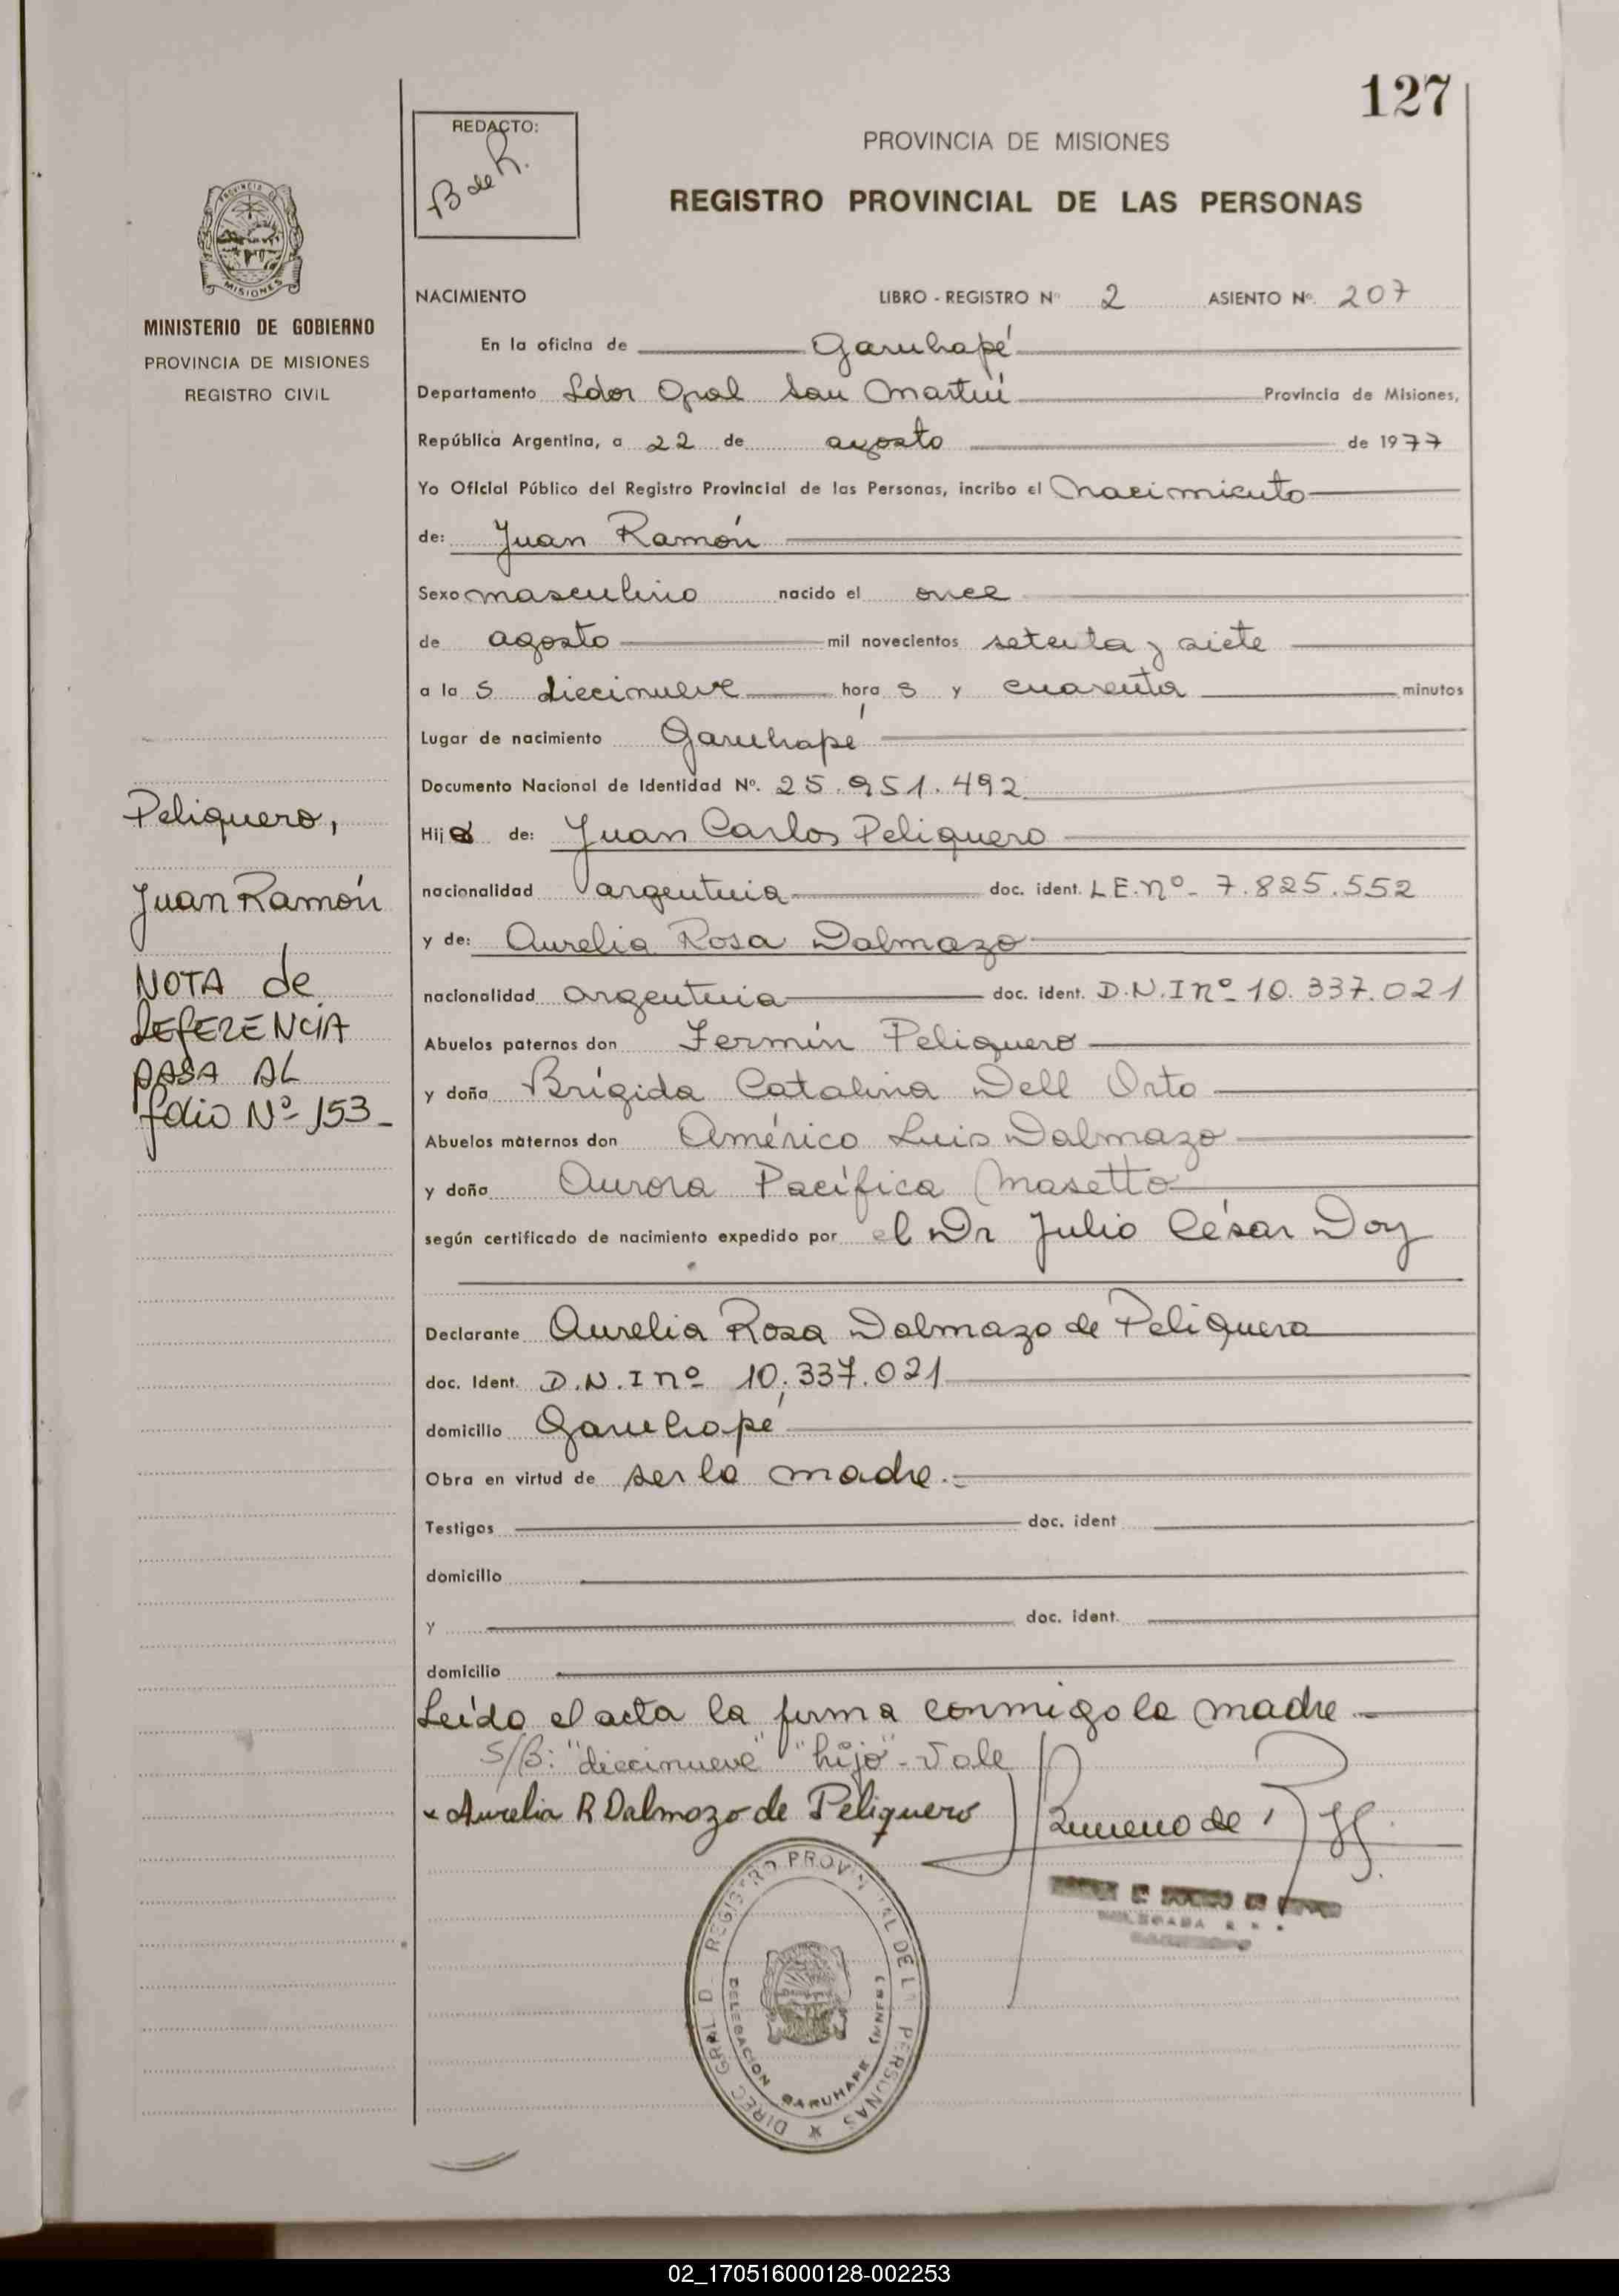 127
REDACTO:
B de R.
PROVINCIA DE MISIONES
REGISTRO PROVINCIAL DE LAS PERSONAS
MINISTERIO DE GOBIERNO
PROVINCIA DE MISIONES
REGISTRO CIVIL
NACIMIENTO LIBRO - REGISTRO Nº 2 ASIENTO Nº. 207
En la oficina de Garuhapé
Departamento Ldor Gral San Martín Provincia de Misiones,
República Argentina, a 22 de agosto de 1977
Yo Oficial Público del Registro Provincial de las Personas, incribo el nacimiento
de: Juan Ramón
Sexo masculino nacido el once
de agosto mil novecientos setenta y siete
a la s diecinueve hora s y cuarenta minutos
Lugar de nacimiento Garuhapé
Documento Nacional de Identidad Nº. 25.951.492
Hijo de: Juan Carlos Peliquero
nacionalidad argentina doc. ident. L E. nº - 7.825.552
y de: Aurelia Rosa Dalmazo
nacionalidad argentina doc. ident. D.N.I nº - 10.337.021
Abuelos paternos don Fermín Peliquero
y doña Brígida Catalina Dell Orto
Abuelos maternos don Américo Luis Dalmazo
y doña Aurora Pacífica Masetto
según certificado de nacimiento expedido por el Dr Julio César Doy
Declarante Aurelia Rosa Dalmazo de Peliquero
doc. Ident. D.N.I nº 10.337.021
domicilio Garuhapé
Obra en virtud de ser la madre.-
Testigos doc. ident
domicilio
y doc. ident.
domicilio
Leído el acta la firma conmigo la madre.-
S/B: "diecinueve" "hijo" - Vale
x Aurelia R Dalmazo de Peliquero
Peliquero,
Juan Ramón
NOTA de
REFERENCIA
PASA AL
folio Nº 153 -
DIREC GRAL D REGISTRO PROVINCIAL DE LAS PERSONAS
DELEGACION GARUHAPE
02_170516000128-002253